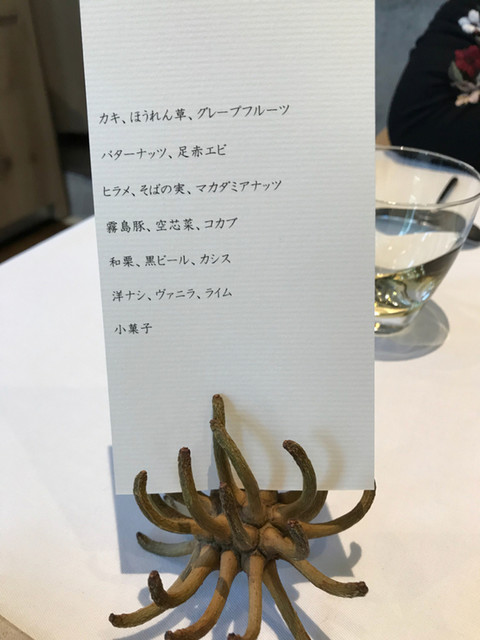 カキ、ほうれん草、グレープフルーツ
バターナッツ、足赤エビ
ヒラメ、そばの実、マカダミアナッツ
霧島豚、空芯菜、コカブ
和栗、黒ビール、カシス
洋ナシ、ヴァニラ、ライム
小菓子